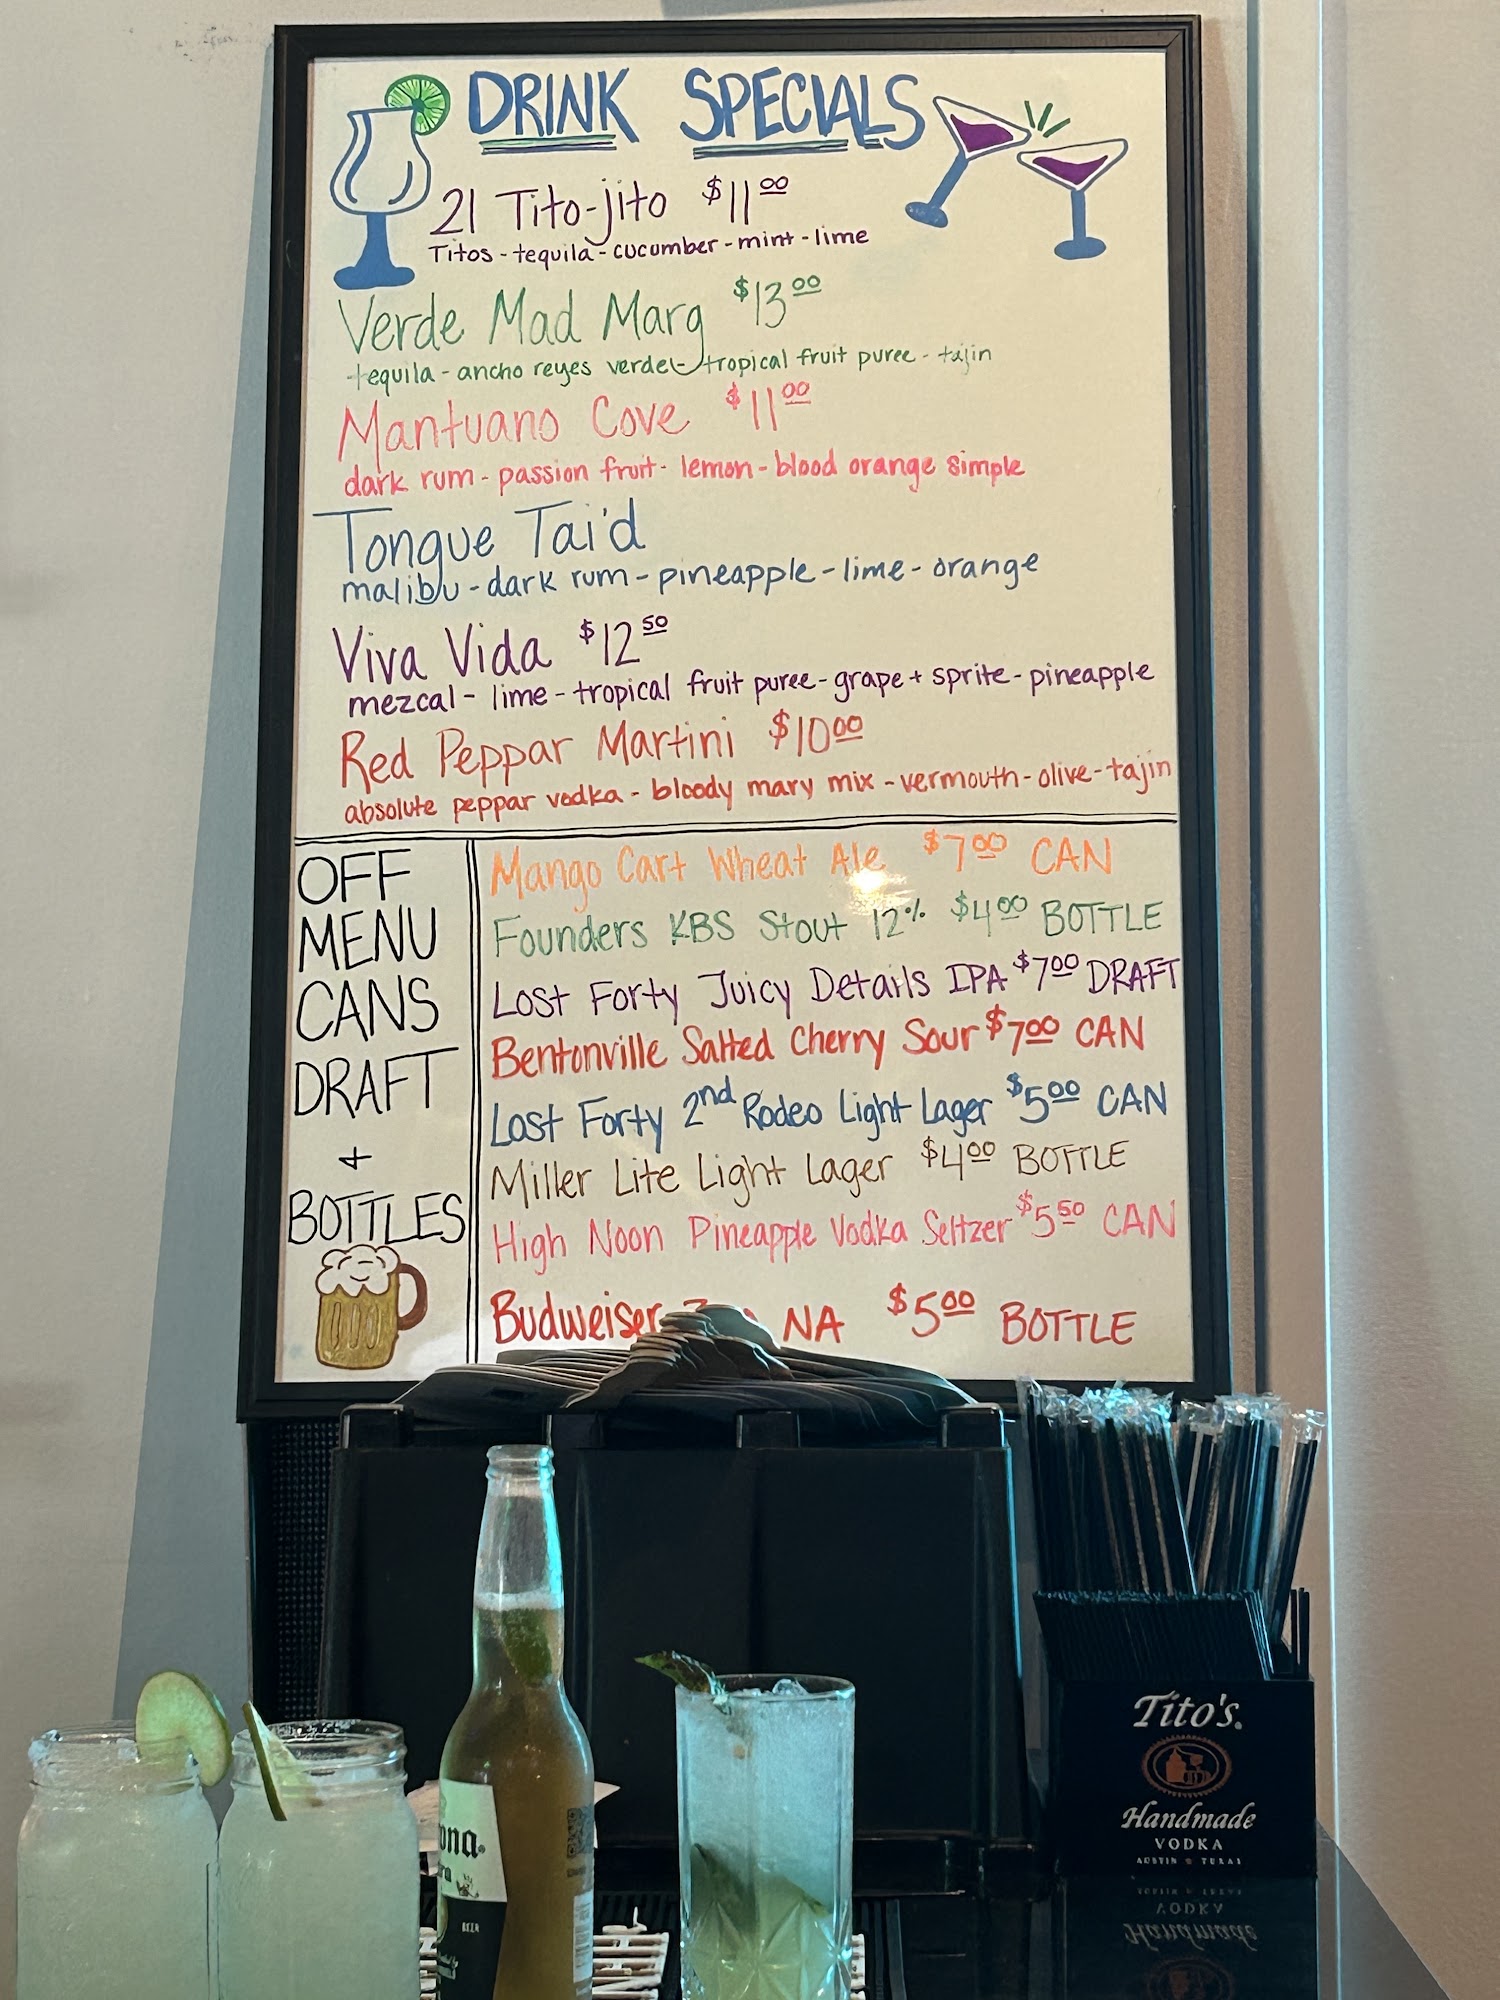 DRINK SPECIALS
21 Tito-jito $11.00
Titos - tequila - cucumber - mint - lime
Verde Mad Marg $13.00
tequila - ancho reyes verde - tropical fruit puree - tajin
Mantuano Cove $11.00
dark rum - passion fruit - lemon - blood orange simple
Tongue Tai'd
malibu - dark rum - pineapple - lime - orange
Viva Vida $12.50
mezcal - lime - tropical fruit puree - grape + sprite - pineapple
Red Peppar Martini $10.00
absolute peppar vodka - bloody mary mix - vermouth - olive - tajin
OFF
MENU
CANS
DRAFT
+
BOTTLES
Mango Cart Wheat Ale $7.00 CAN
Founders KBS Stout 12% $4.00 BOTTLE
Lost Forty Juicy Details IPA $7.00 DRAFT
Bentonville Salted Cherry Sour $7.00 CAN
Lost Forty 2nd Rodeo Light Lager $5.00 CAN
Miller Lite Light Lager $4.00 BOTTLE
High Noon Pineapple Vodka Seltzer $5.50 CAN
Budweiser NA $5.00 BOTTLE
Tito's
Handmade
VODKA
AUSTIN TEXAS
ona
ra
BEER